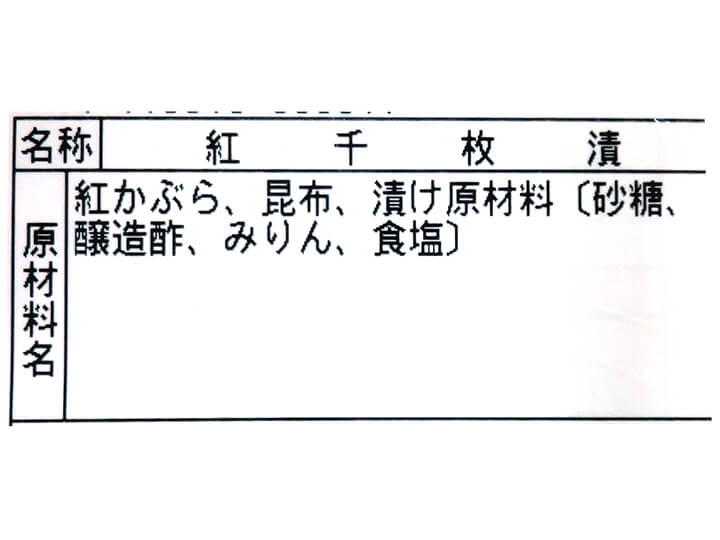 名称 紅千枚漬
原材料名 紅かぶら、昆布、漬け原材料〔砂糖、
醸造酢、みりん、食塩〕